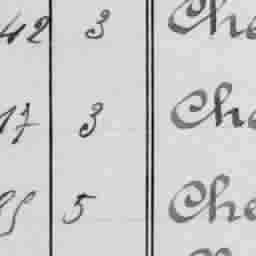 42 3 Che
17 3 Che
5 Che